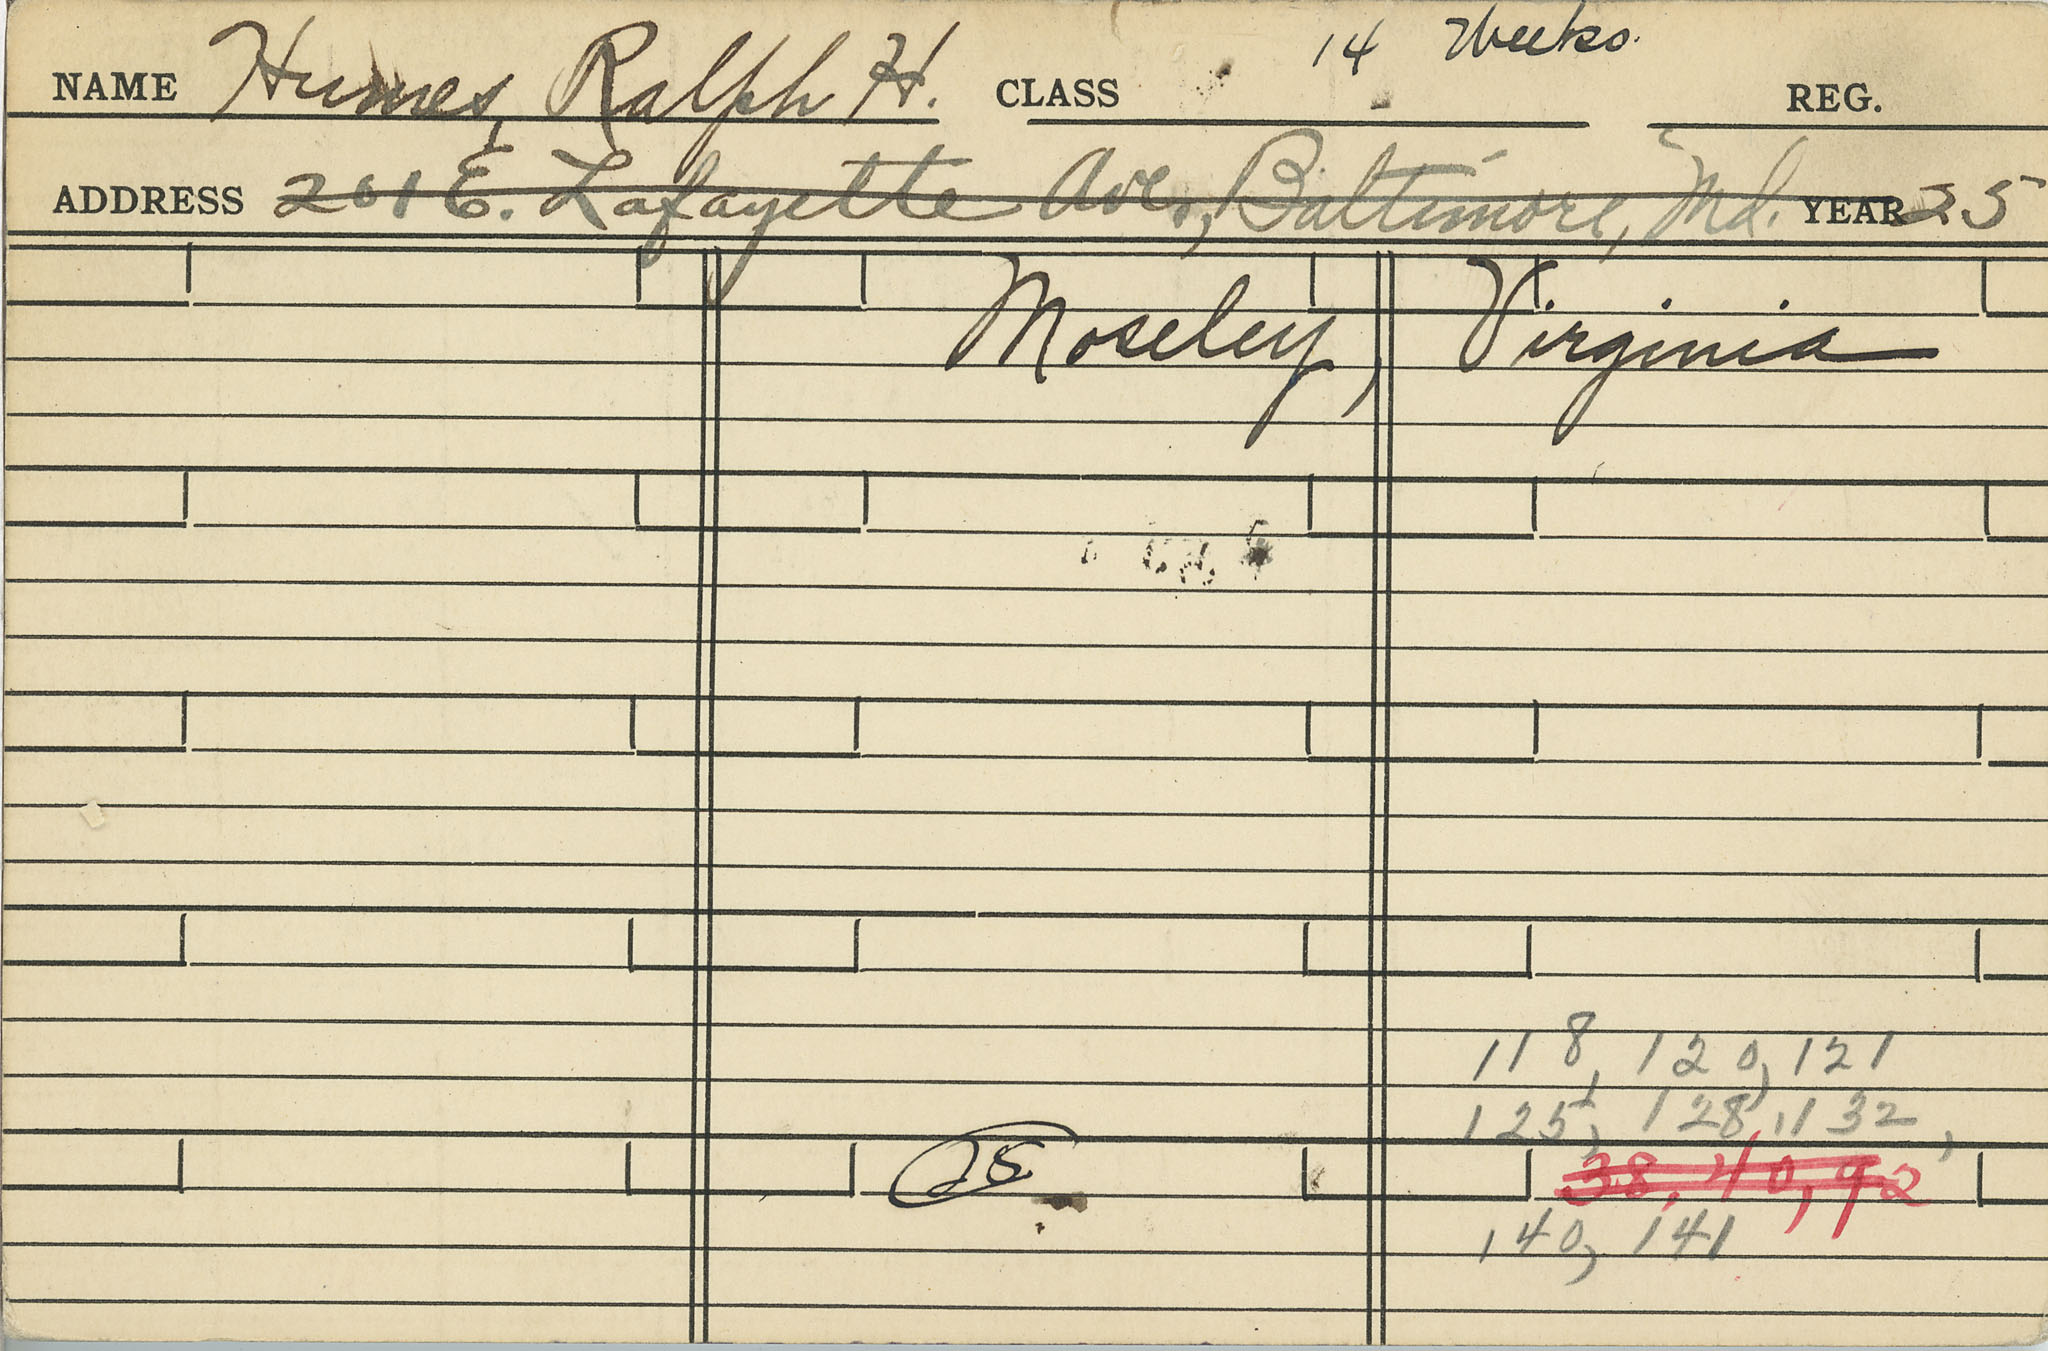 NAME Humes, Ralph H. CLASS 14 Weeks. REG.
ADDRESS 201 E. Lafayette Ave., Baltimore, Md. YEAR 25
Moseley, Virginia
118, 120, 121
125, 128, 132,
25
38, 40, 92
140, 141